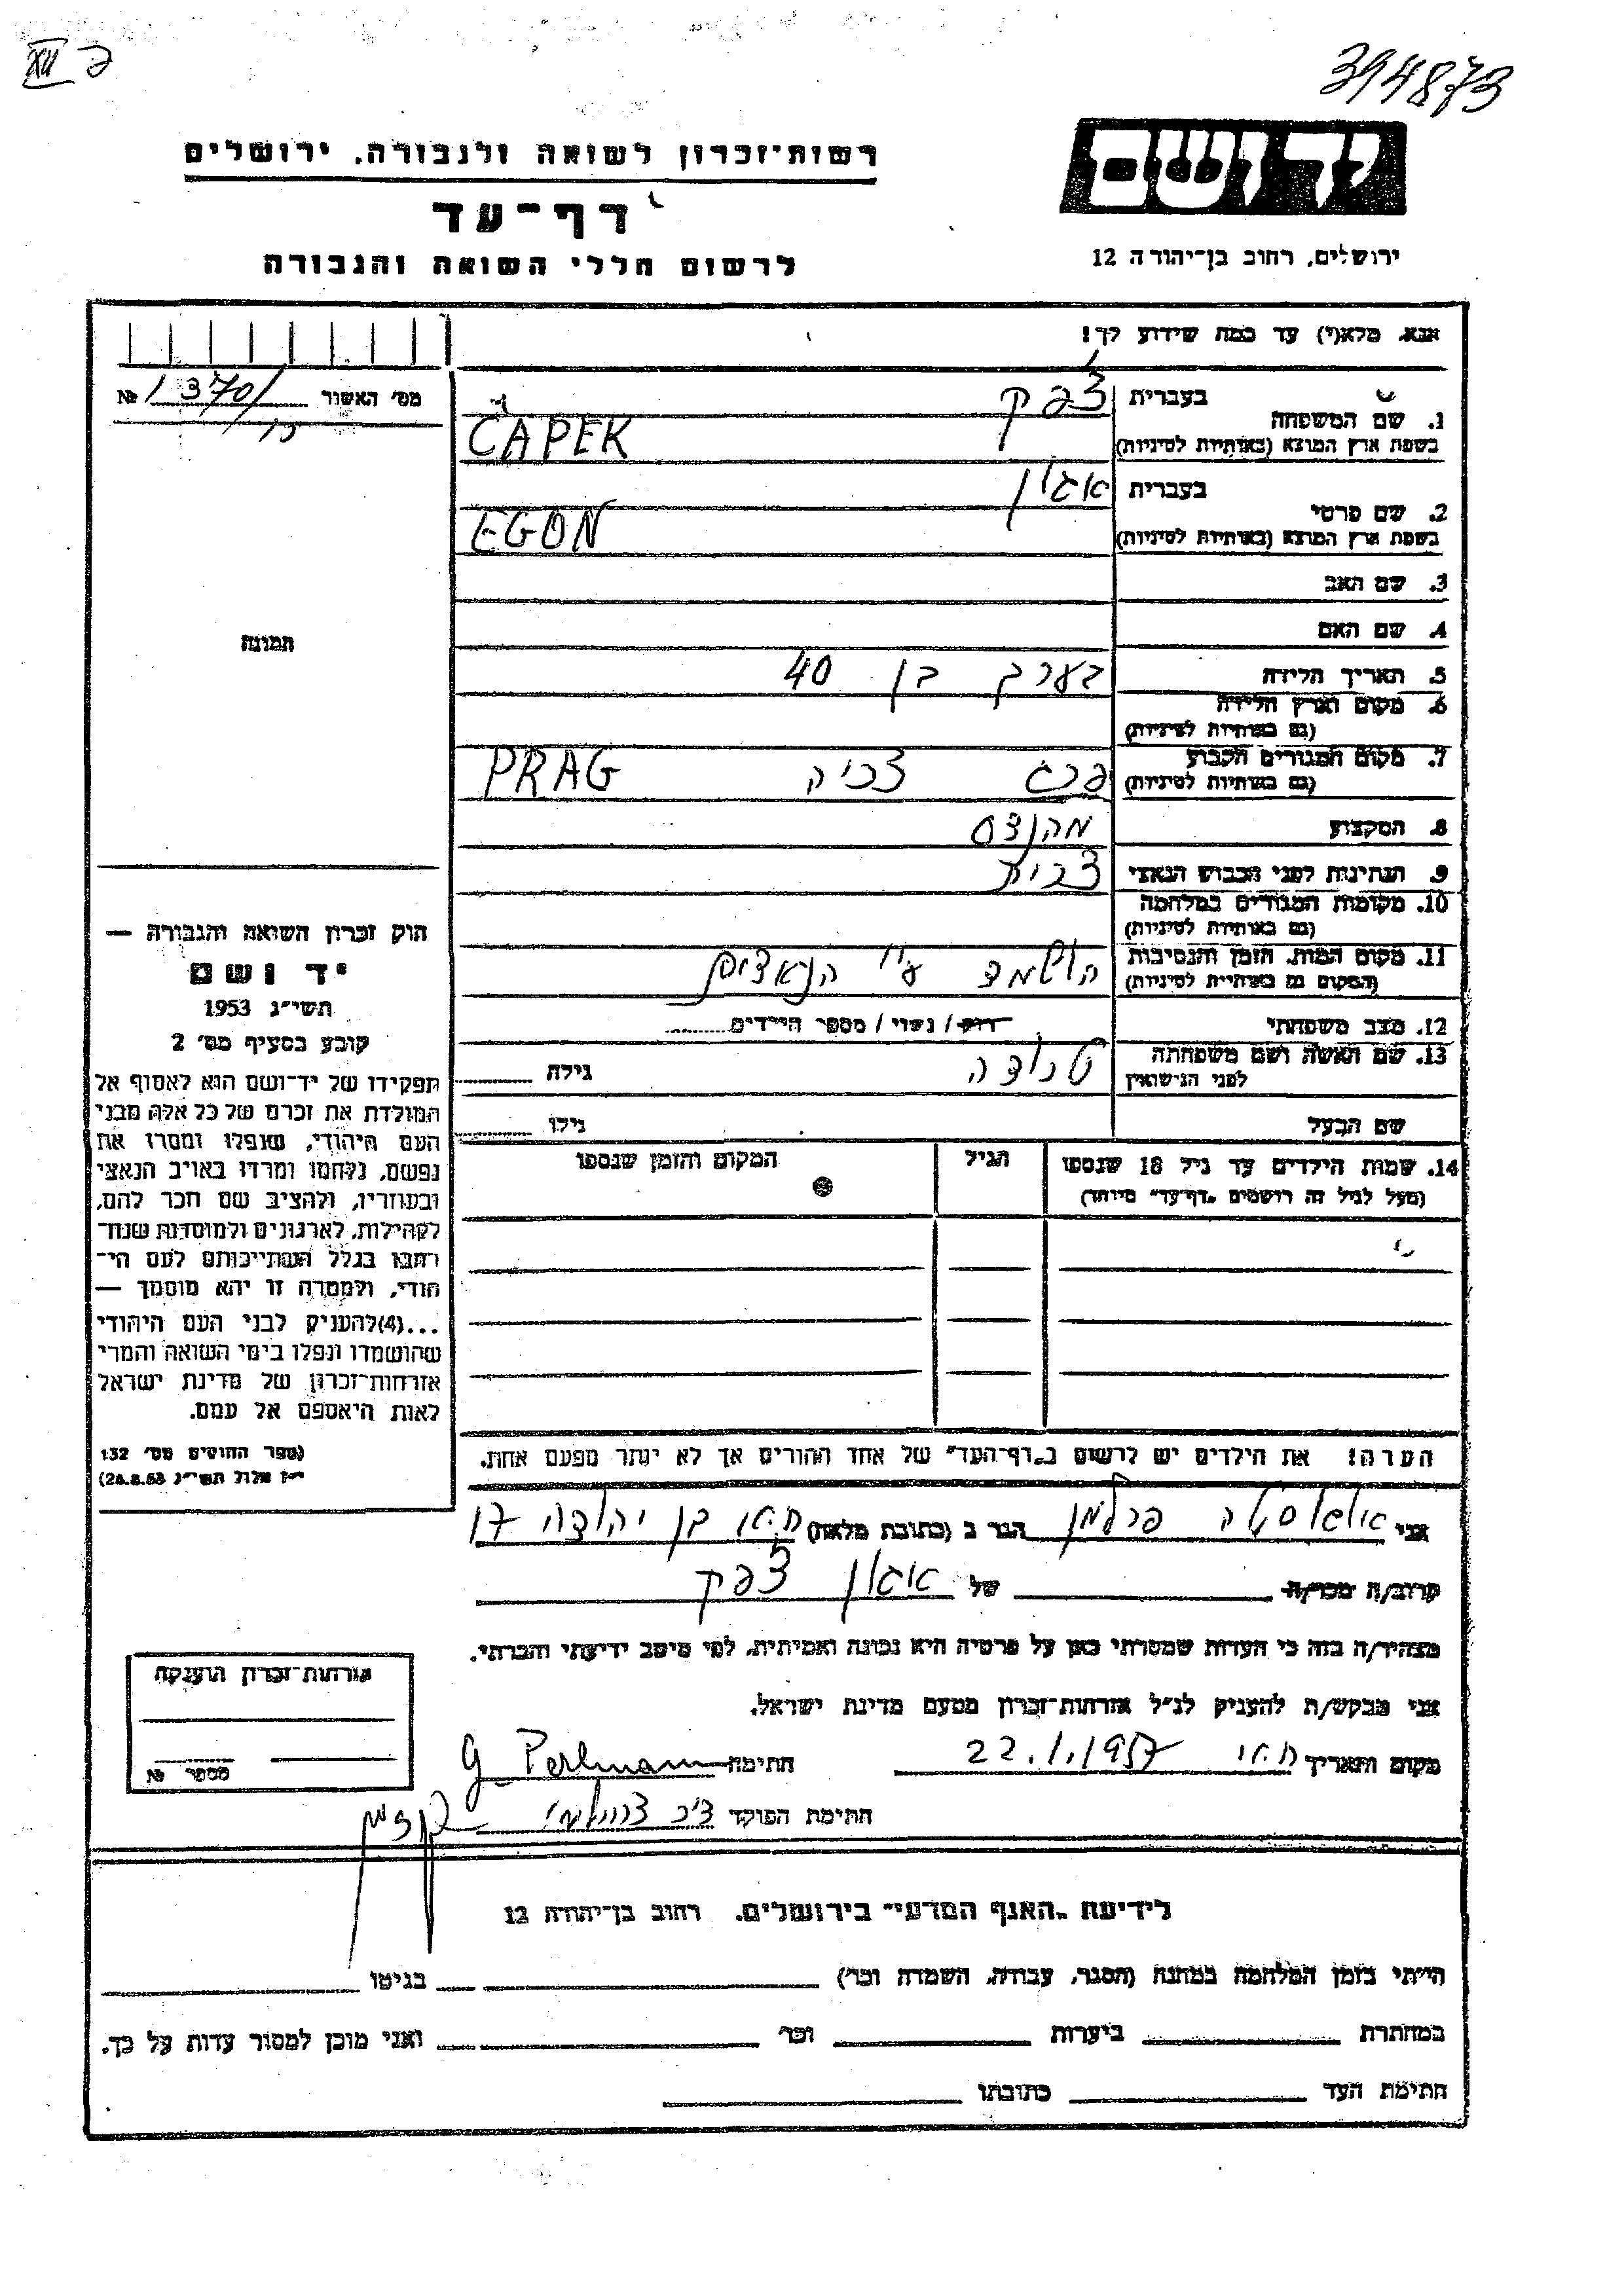 394873
XII
יד ושם
ירושלים, רחוב בן־יהודה 12
רשות־זכרון לשואה ולגבורה, ירושלים
דף־עד
לרשום חללי השואה והגבורה
אנא, מלא(י) עד כמה שידוע לך!
מס׳ האשור № 1370/
1. שם המשפחה
בעברית צפק
בשפת ארץ המוצא (באותיות לטיניות) ČAPEK
2. שם פרטי
בעברית אגון
בשפת ארץ המוצא (באותיות לטיניות) EGON
3. שם האב
4. שם האם
5. תאריך הלידה בערך בן 40
6. מקום וארץ הלידה
(גם באותיות לטיניות)
7. מקום המגורים הקבוע פרג צכיה PRAG
(גם באותיות לטיניות)
8. המקצוע מהנדס
9. הנתינות לפני הכבוש הנאצי צכית
10. מקומות המגורים במלחמה
(גם באותיות לטיניות)
11. מקום המות, הזמן והנסיבות הושמד ע״י הנאצים
(המקום גם באותיות לטיניות)
12. מצב משפחתי רוק / נשוי / מספר הילדים
13. שם האשה ושם משפחתה
לפני הנישואין גילה
שם הבעל גילו
14. שמות הילדים עד גיל 18 שנספו
(מעל לגיל זה רושמים ״דף־עד״ מיוחד)
הגיל
המקום והזמן שנספו
הערה! את הילדים יש לרשום ב״דף־העד״ של אחד ההורים אך לא יותר מפעם אחת.
תמונה
חוק זכרון השואה והגבורה —
יד ושם
תשי״ג 1953
קובע בסעיף מס׳ 2
תפקידו של יד־ושם הוא לאסוף אל
המולדת את זכרם של כל אלה מבני
העם היהודי, שנפלו ומסרו את
נפשם, נלחמו ומרדו באויב הנאצי
ובעוזריו, ולהציב שם וזכר להם,
לקהילות, לארגונים ולמוסדות שנח־
רבו בגלל השתייכותם לעם הי־
הודי, ולמטרה זו יהא מוסמך —
...(4)להעניק לבני העם היהודי
שהושמדו ונפלו בימי השואה והמרי
אזרחות־זכרון של מדינת ישראל
לאות היאספם אל עמם.
(ספר החוקים מס׳ 132
י״ז אלול תשי״ג 28.8.53)
אני אוגוסטה פרלמן הגר ב (כתובת מלאה) חיפה בן יהודה 17
קרוב/ה מכר/ה של אגון צפק
מצהיר/ה בזה כי העדות שמסרתי כאן על פרטיה היא נכונה ואמיתית, לפי מיטב ידיעתי והכרתי.
אני מבקש/ת להעניק לנ״ל אזרחות־זכרון מטעם מדינת ישראל.
מקום ותאריך חיפה 22.1.1957 חתימה G Perlmann
חתימת הפוקד
אזרחות־זכרון הוענקה
מספר №
לידיעת ״האגף המדעי״ בירושלים, רחוב בן־יהודה 12
הייתי בזמן המלחמה במחנה (הסגר, עבודה, השמדה וכו׳) בגיטו
במחתרת ביערות וכו׳ ואני מוכן למסור עדות על כך.
חתימת העד כתובתו